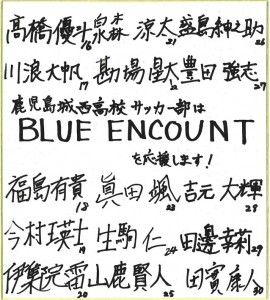 高橋優斗16 泉本森 涼太21 盛島紳之助26
川浪大帆17 勘場星太 豊田強志27
鹿児島城西高校サッカー部は
BLUE ENCOUNT
を応援します!
福島有貴18 眞田颯23 吉元大輝28
今村瑛士19 生駒仁24 田邊幸莉29
伊集院雷20 山鹿賢人25 田實康人30